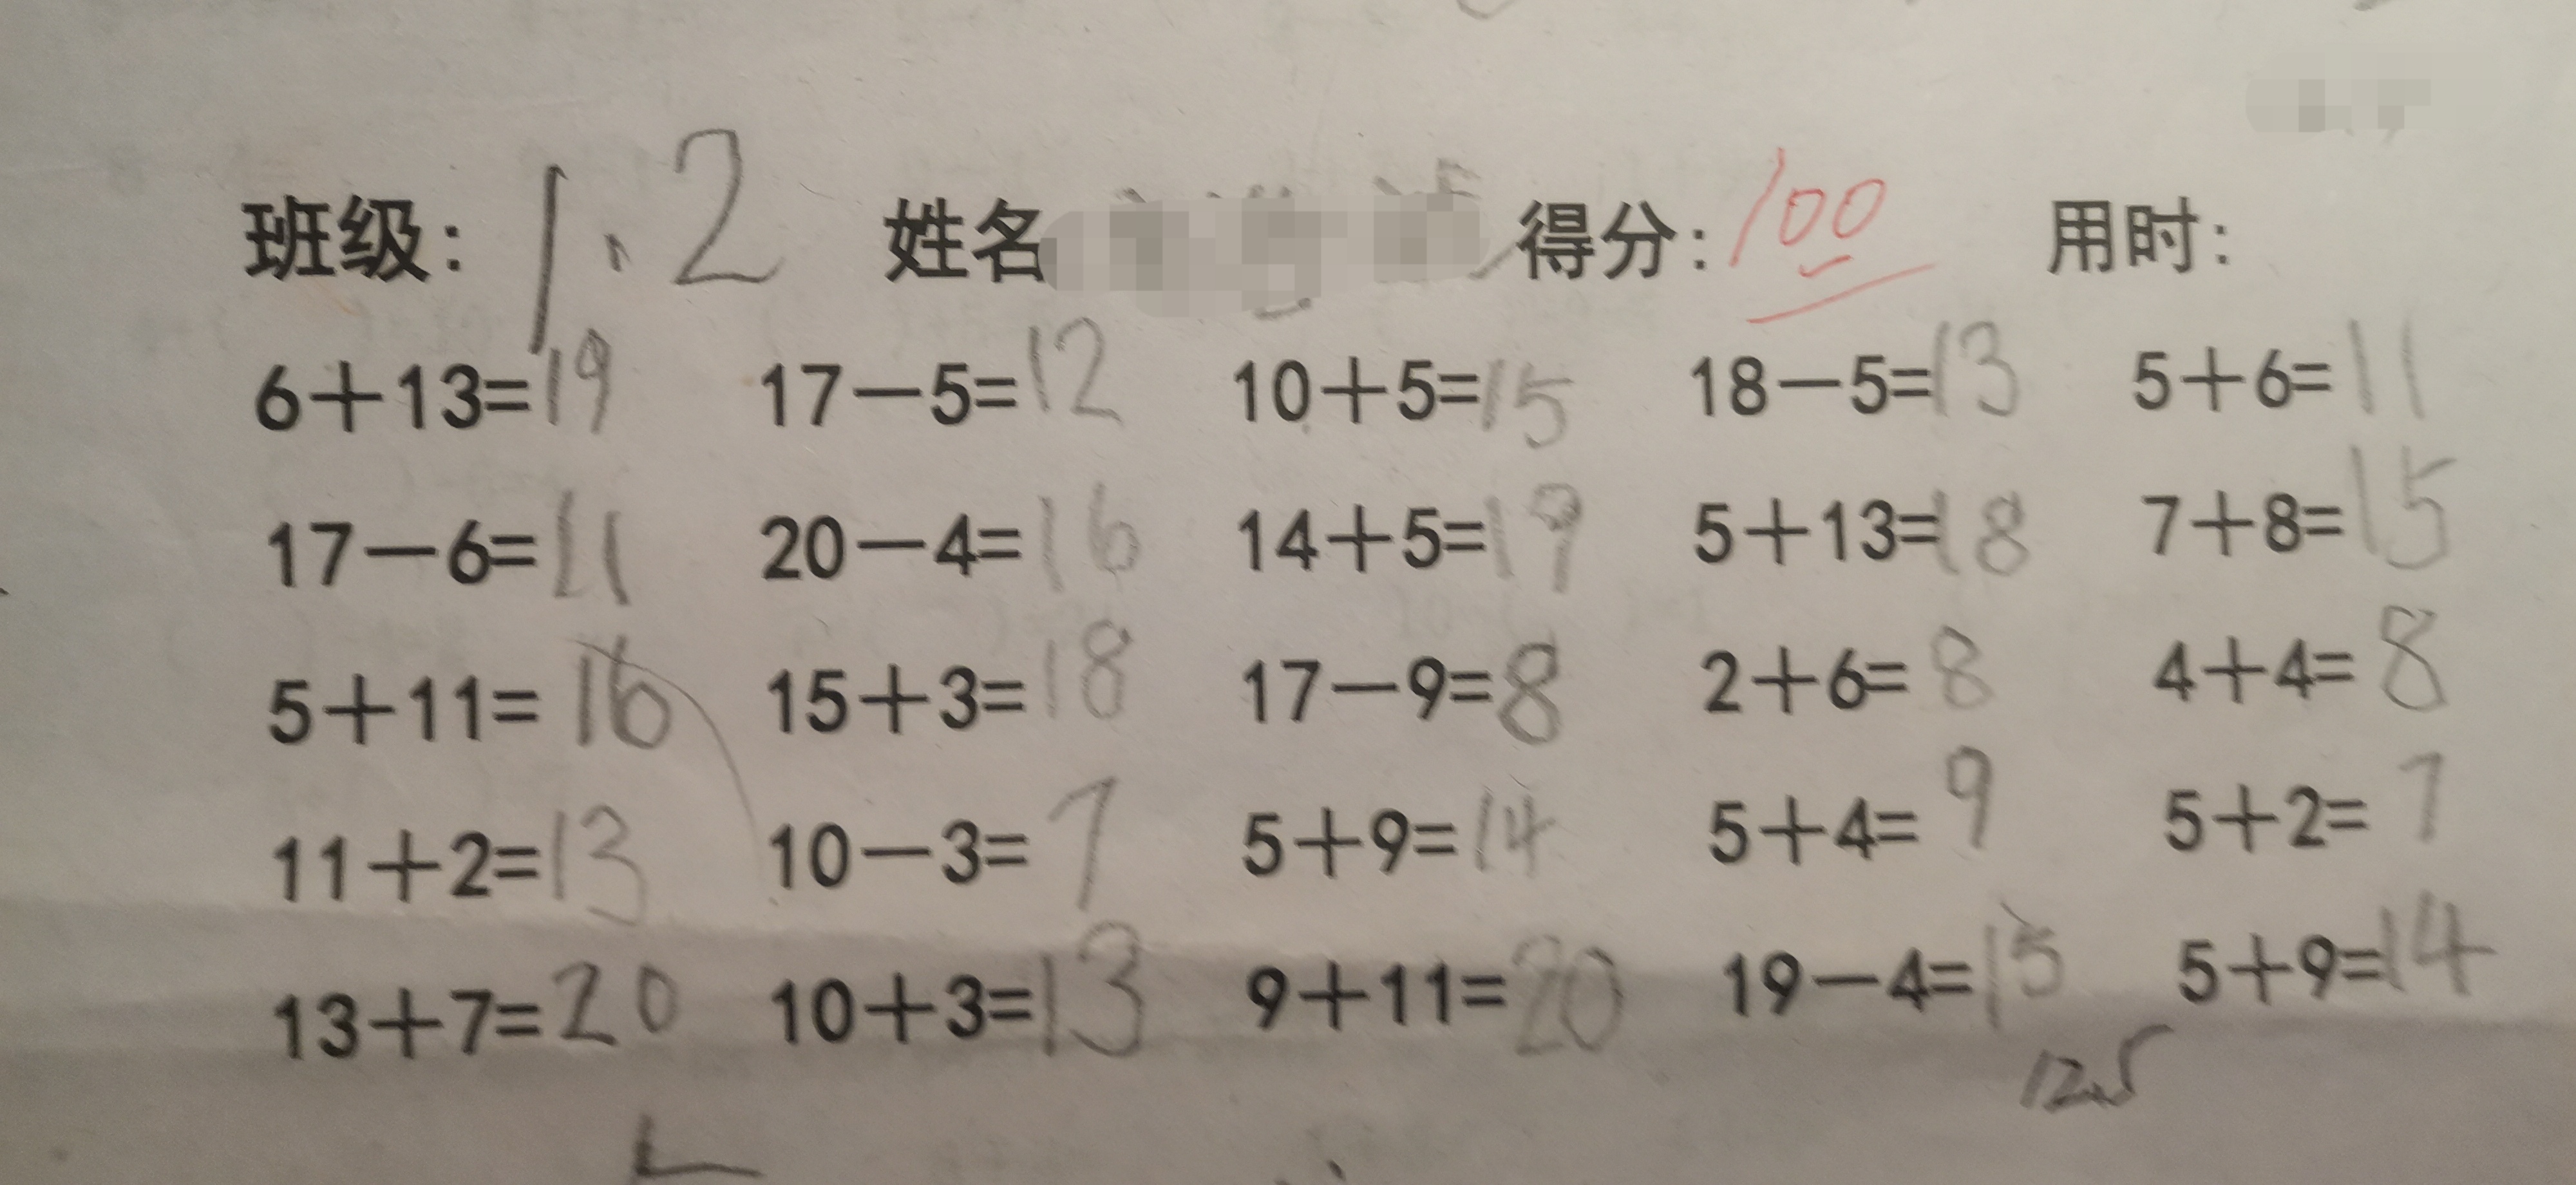 班级：1.2 姓名 得分：100 用时：
6＋13=19 17－5=12 10＋5=15 18－5=13 5＋6=11
17－6=11 20－4=16 14＋5=19 5＋13=18 7＋8=15
5＋11=16 15＋3=18 17－9=8 2＋6=8 4＋4=8
11＋2=13 10－3=7 5＋9=14 5＋4=9 5＋2=7
13＋7=20 10＋3=13 9＋11=20 19－4=15 5＋9=14
12.5